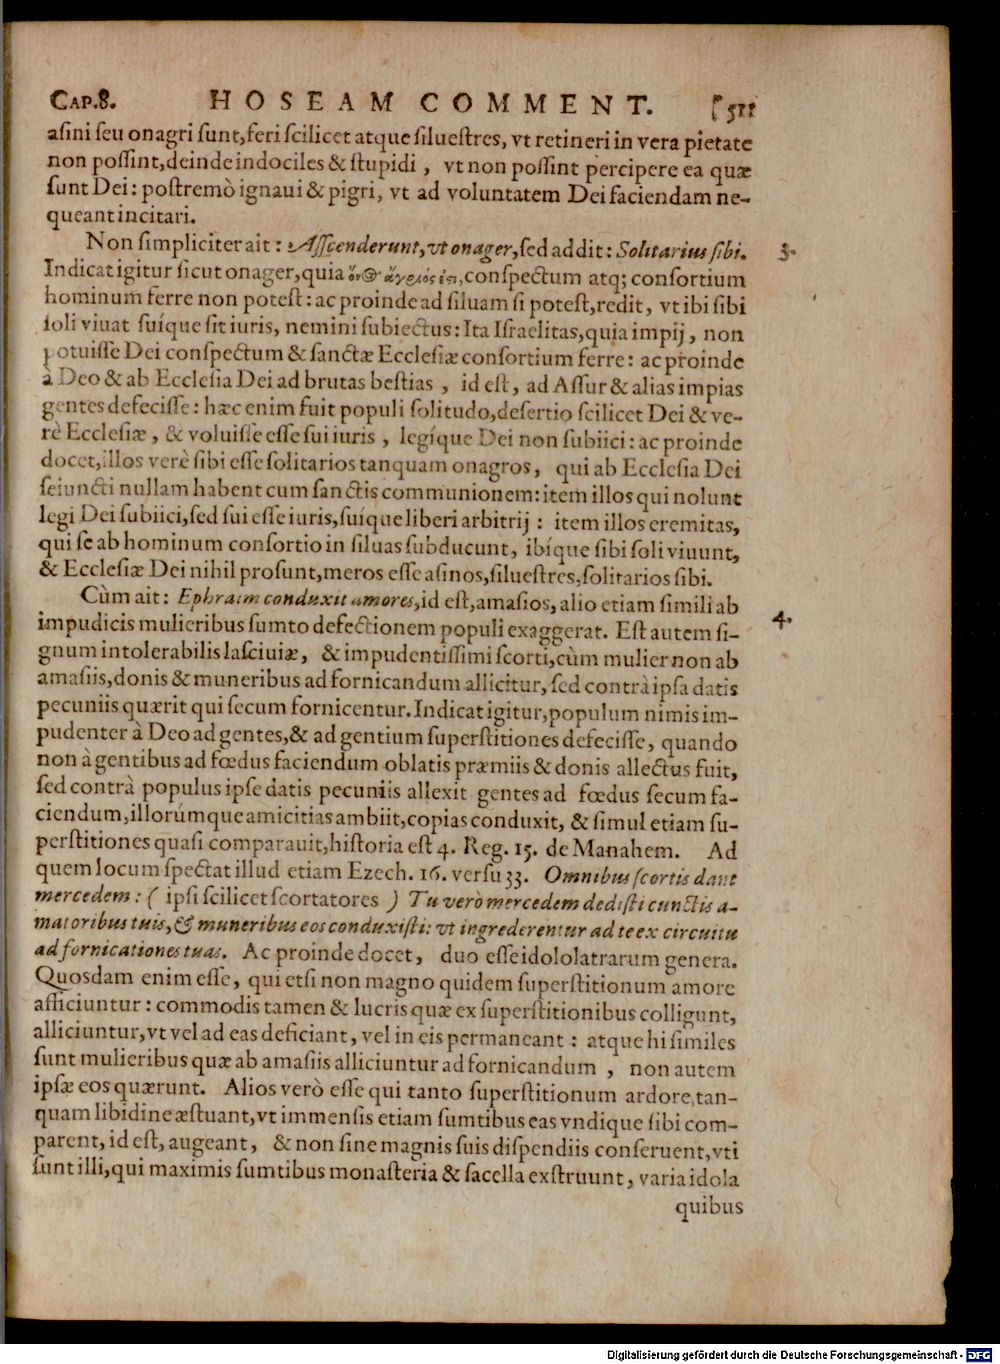 CAP.8. HOSEAM COMMENT. 511
asini seu onagri sunt,feri scilicet atque siluestres, vt retineri in vera pietate
non possint,deinde indociles & stupidi , vt non possint percipere ea quæ
sunt Dei: postremò ignaui & pigri, vt ad voluntatem Dei faciendam ne-
queant incitari.
Non simpliciter ait: Ascenderunt,vt onager,sed addit: Solitarius sibi. 3.
Indicat igitur sicut onager,quia conspectum atq; consortium
hominum ferre non potest: ac proinde ad siluam si potest,redit, vt ibi sibi
soli viuat suíque sit iuris, nemini subiectus: Ita Israelitas,quia impij, non
potuisse Dei conspectum & sanctæ Ecclesiæ consortium ferre: ac proinde
à Deo & ab Ecclesia Dei ad brutas bestias , id est, ad Assur & alias impias
gentes defecisse: hæc enim fuit populi solitudo,desertio scilicet Dei & ve-
rè Ecclesiæ, & voluisse esse sui iuris , legíque Dei non subiici: ac proinde
docet,illos verè sibi esse solitarios tanquam onagros, qui ab Ecclesia Dei
seiuncti nullam habent cum sanctis communionem: item illos qui nolunt
legi Dei subiici,sed sui esse iuris,suíque liberi arbitrij : item illos eremitas,
qui se ab hominum consortio in siluas subducunt, ibíque sibi soli viuunt,
& Ecclesiæ Dei nihil prosunt,meros esse asinos,siluestres,solitarios sibi.
Cùm ait: Ephraim conduxit amores,id est,amasios, alio etiam simili ab 4.
impudicis mulieribus sumto defectionem populi exaggerat. Est autem si-
gnum intolerabilis lasciuiæ, & impudentissimi scorti,cùm mulier non ab
amasiis,donis & muneribus ad fornicandum allicitur, sed contrà ipsa datis
pecuniis quærit qui secum fornicentur. Indicat igitur,populum nimis im-
pudenter à Deo ad gentes,& ad gentium superstitiones defecisse, quando
non à gentibus ad fœdus faciendum oblatis præmiis & donis allectus fuit,
sed contrà populus ipse datis pecuniis allexit gentes ad fœdus secum fa-
ciendum,illorúmque amicitias ambiit,copias conduxit, & simul etiam su-
perstitiones quasi comparauit,historia est 4. Reg. 15. de Manahem. Ad
quem locum spectat illud etiam Ezech. 16. versu 33. Omnibus scortis dant
mercedem: ( ipsi scilicet scortatores ) Tu verò mercedem dedisti cunctis a-
matoribus tuis, & muneribus eos conduxisti: vt ingrederentur ad te ex circuitu
ad fornicationes tuas. Ac proinde docet, duo esse idololatrarum genera.
Quosdam enim esse, qui etsi non magno quidem superstitionum amore
afficiuntur: commodis tamen & lucris quæ ex superstitionibus colligunt,
alliciuntur,vt vel ad eas deficiant, vel in eis permaneant : atque hi similes
sunt mulieribus quæ ab amasiis alliciuntur ad fornicandum , non autem
ipsæ eos quærunt. Alios verò esse qui tanto superstitionum ardore,tan-
quam libidine æstuant,vt immensis etiam sumtibus eas vndique sibi com-
parent, id est, augeant, & non sine magnis suis dispendiis conseruent,vti
sunt illi,qui maximis sumtibus monasteria & sacella exstruunt, varia idola
quibus
Digitalisierung gefördert durch die Deutsche Forschungsgemeinschaft - DFG